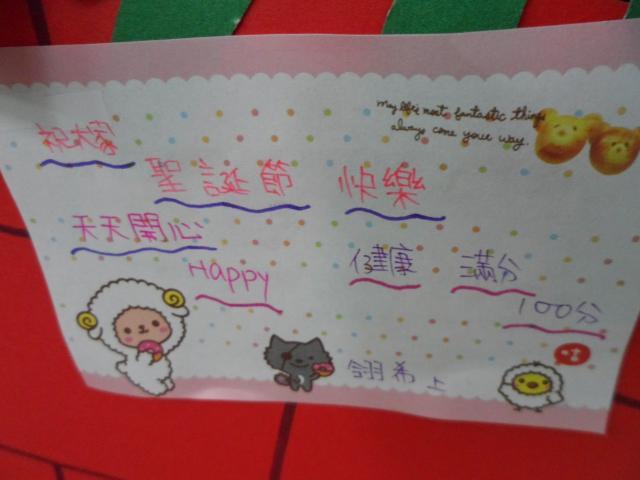 May life's most fantastic things
always come your way.
祝大家
聖誕節 快樂
天天開心
Happy 健康 滿分
100分
翊希上